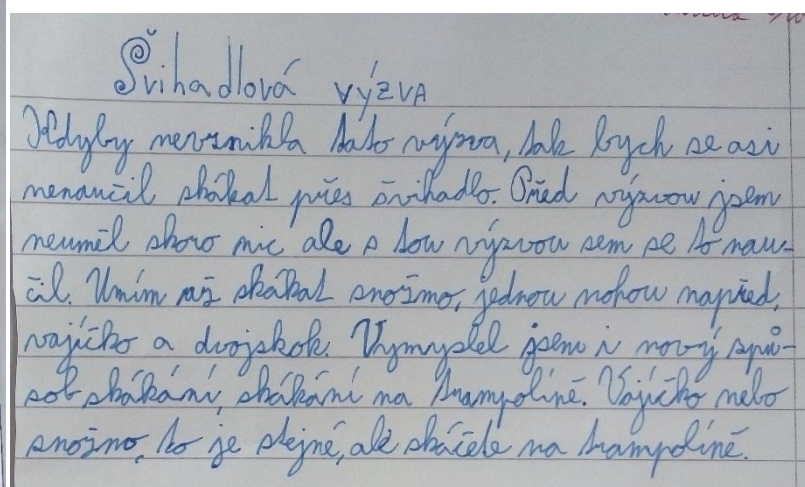 Švihadlová výzva
Kdyby nevznikla tato výzva, tak bych se asi
nenaučil skákat přes švihadlo. Před výzvou jsem
neuměl skoro nic ale s tou výzvou sem se to nau-
čil. Umím už skákat snožmo, jednou nohou napřed,
vajíčko a dvojskok. Vymyslel jsem i nový způ-
sob skákání, skákání na trampolíně. Vajíčko nebo
snožmo, to je stejné, ale skáčete na trampolíně.